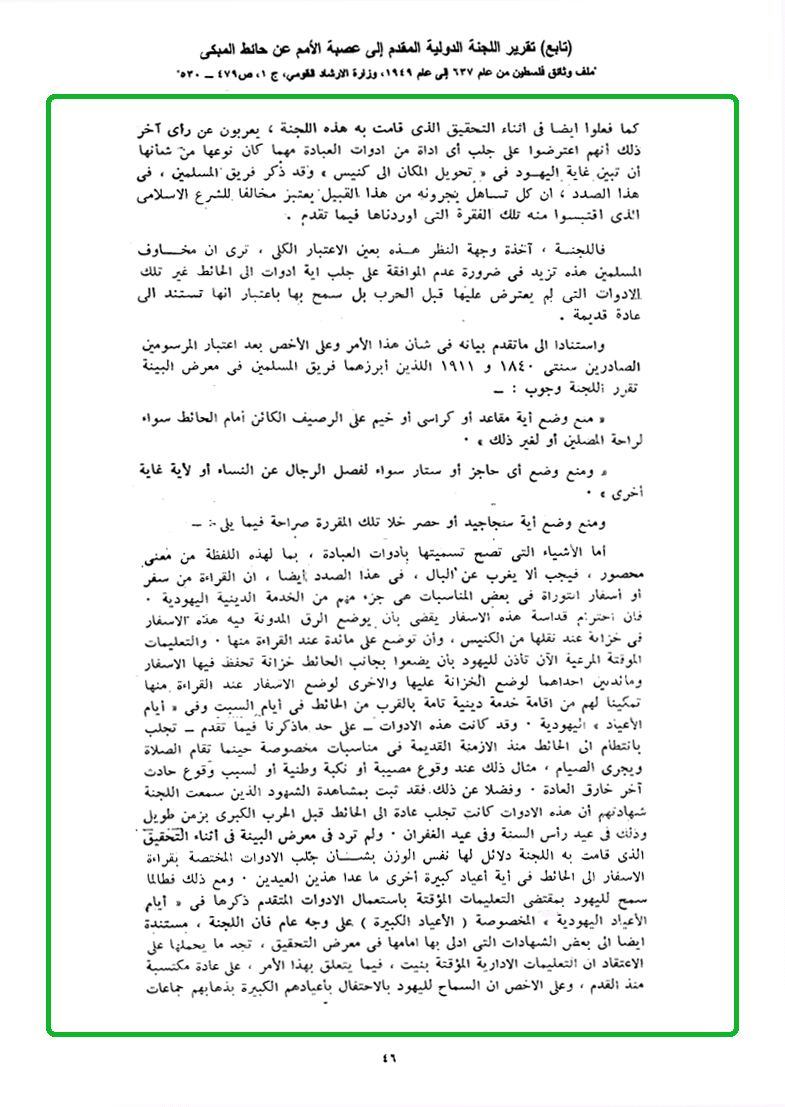 (تابع) تقرير اللجنة الدولية المقدم إلى عصبة الأمم عن حائط المبكى
"ملف وثائق فلسطين من عام ٦٣٧ إلى عام ١٩٤٩، وزارة الارشاد القومي، ج ١، ص ٤٧٩ ــ ٥٣٠"
كما فعلوا ايضا فى اثناء التحقيق الذى قامت به هذه اللجنة ، يعربون عن رأى آخر
ذلك أنهم اعترضوا على جلب أى اداة من ادوات العبادة مهما كان نوعها من شأنها
أن تبين غاية اليهود فى « تحويل المكان الى كنيس » وقد ذكر فريق المسلمين ، فى
هذا الصدد ، ان كل تساهل يجرونه من هذا القبيل يعتبر مخالفا للشرع الاسلامى
الذى اقتبسوا منه تلك الفقرة التى اوردناها فيما تقدم .
فاللجنة ، آخذة وجهة النظر هذه بعين الاعتبار الكلى ، ترى ان مخاوف
المسلمين هذه تزيد فى ضرورة عدم الموافقة على جلب اية ادوات الى الحائط غير تلك
الادوات التى لم يعترض عليها قبل الحرب بل سمح بها باعتبار انها تستند الى
عادة قديمة .
واستنادا الى ماتقدم بيانه فى شأن هذا الأمر وعلى الأخص بعد اعتبار المرسومين
الصادرين سنتى ١٨٤٠ و ١٩١١ اللذين أبرزهما فريق المسلمين فى معرض البينة
تقرر اللجنة وجوب : ــ
« منع وضع أية مقاعد أو كراسى أو خيم على الرصيف الكائن أمام الحائط سواء
لراحة المصلين أو لغير ذلك » ·
« ومنع وضع أى حاجز أو ستار سواء لفصل الرجال عن النساء أو لأية غاية
أخرى » ·
ومنع وضع أية سنجاجيد أو حصر خلا تلك المقررة صراحة فيما يلى : ــ
أما الأشياء التى تصح تسميتها بأدوات العبادة ، بما لهذه اللفظة من معنى
محصور ، فيجب ألا يغرب عن البال ، فى هذا الصدد أيضا ، ان القراءة من سفر
أو أسفار التوراة فى بعض المناسبات هى جزء مهم من الخدمة الدينية اليهودية ·
فان احترام قداسة هذه الاسفار يقضى بأن يوضع الرق المدونة فيه هذه الاسفار
فى خزانة عند نقلها من الكنيس ، وأن توضع على مائدة عند القراءة منها · والتعليمات
الموقتة المرعية الآن تأذن لليهود بأن يضعوا بجانب الحائط خزانة تحفظ فيها الاسفار
ومائدتين احداهما لوضع الخزانة عليها والاخرى لوضع الاسفار عند القراءة منها
تمكينا لهم من اقامة خدمة دينية تامة بالقرب من الحائط فى أيام السبت وفى « أيام
الأعياد » اليهودية · وقد كانت هذه الادوات ــ على حد ماذكرنا فيما تقدم ــ تجلب
بانتظام الى الحائط منذ الازمنة القديمة فى مناسبات مخصوصة حينما تقام الصلاة
ويجرى الصيام ، مثال ذلك عند وقوع مصيبة أو نكبة وطنية أو لسبب وقوع حادث
آخر خارق العادة · وفضلا عن ذلك فقد ثبت بمشاهدة الشهود الذين سمعت اللجنة
شهادتهم أن هذه الادوات كانت تجلب عادة الى الحائط قبل الحرب الكبرى بزمن طويل
وذلك فى عيد رأس السنة وفى عيد الغفران · ولم ترد فى معرض البينة فى أثناء التحقيق
الذى قامت به اللجنة دلائل لها نفس الوزن بشأن جلب الادوات المختصة بقراءة
الاسفار الى الحائط فى أية أعياد كبيرة أخرى ما عدا هذين العيدين · ومع ذلك فطالما
سمح لليهود بمقتضى التعليمات المؤقتة باستعمال الادوات المتقدم ذكرها فى « أيام
الأعياد اليهودية » المخصوصة ( الأعياد الكبيرة ) على وجه عام فان اللجنة ، مستندة
ايضا الى بعض الشهادات التى ادلى بها امامها فى معرض التحقيق ، تجد ما يحملها على
الاعتقاد ان التعليمات الادارية المؤقتة بنيت ، فيما يتعلق بهذا الأمر ، على عادة مكتسبة
منذ القدم ، وعلى الاخص ان السماح لليهود بالاحتفال بأعيادهم الكبيرة بذهابهم جماعات
٤٦